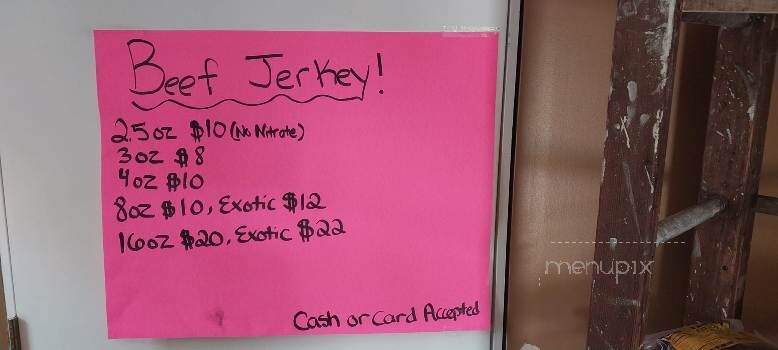 Beef Jerkey!
2.5oz $10 (No Nitrate)
3oz $8
4oz $10
8oz $10, Exotic $12
16oz $20, Exotic $22
Cash or Card Accepted
menupix